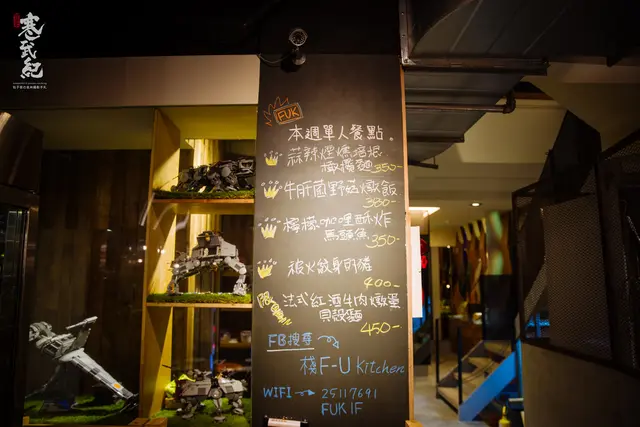 寒武紀
FUK
本週單人餐點。
蒜辣煙燻培根
橄欖麵 350-
牛肝菌野菇燉飯
380-
檸檬咖哩酥炸
馬頭魚 350-
被火紋身的豬
400-
限量!! 法式紅酒牛肉燉蛋
貝殼麵 450-
FB搜尋
棧F-U Kitchen
WIFI → 25117691
FUK IF